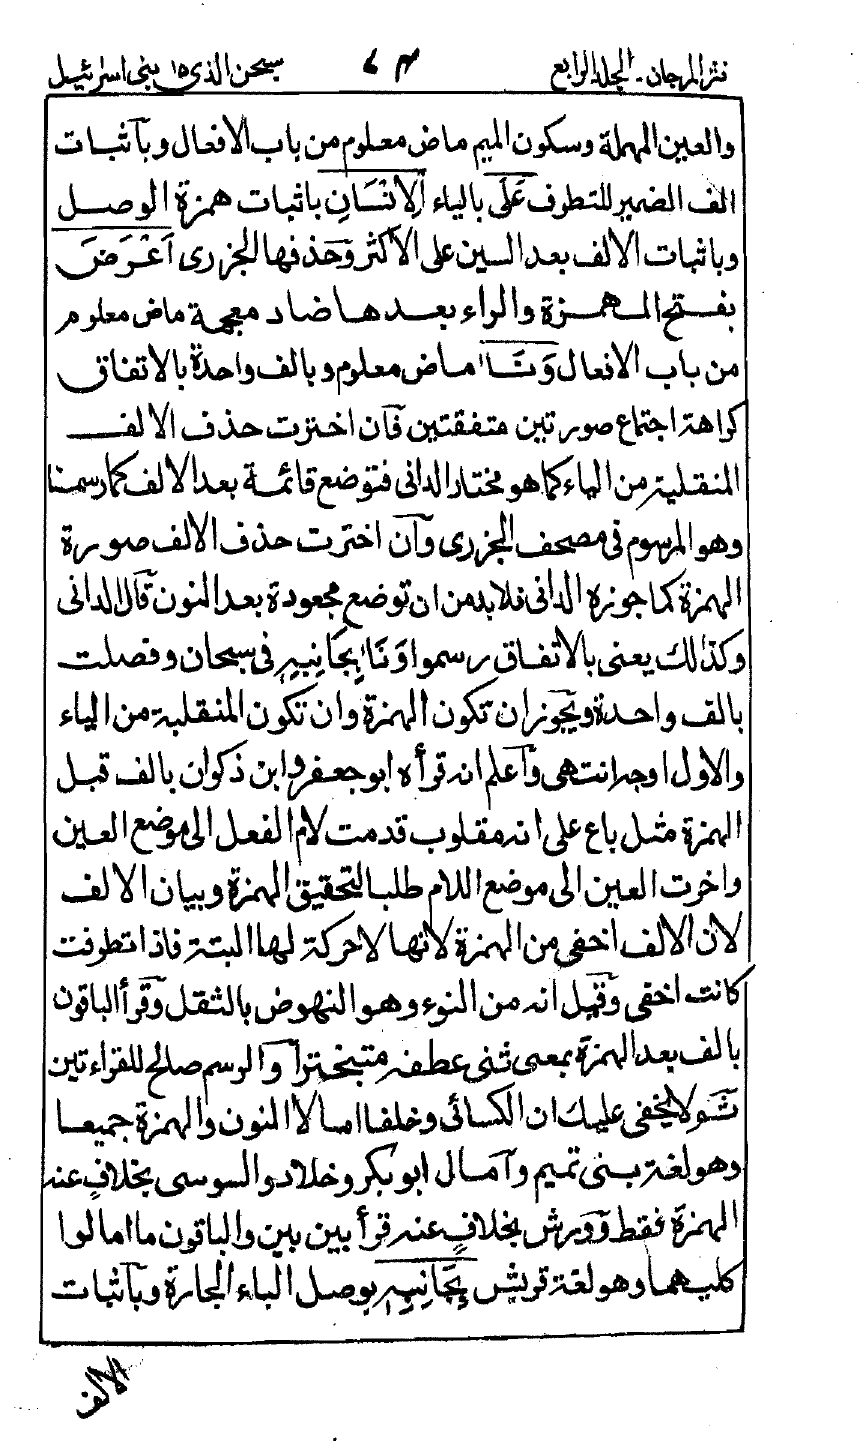 نثر المرجان - الجلد الرابع
سبحن الذى ١٥ بنى اسرائيل
والعين المهملة وسكون الميم ماض معلوم من باب الافعال وبآثبات
الف الضمير للتطرف عَلَى بالياء اْلاِنْسَانِ باثبات همزة الوصل
وباثبات الالف بعد السين على الاكثر وحذفها الجزرى اَعْرَضَ
بفتح الهمزة والراء بعدها ضاد معجمة ماض معلوم
من باب الافعال وَنَاٰ ماض معلوم وبالف واحدة بالاتفاق
كراهة اجتماع صورتين متفقتين فآن اخترت حذف الالف
المنقلبة من الياء كما هو مختار الدانى فتوضع قائمة بعد الالف كما رسمنا
وهو المرسوم فى مصحف الجزرى وآن اخترت حذف الالف صورة
الهمزة كما جوزه الدانى فلابد من ان توضع مجعودة بعد النون قآل الدانى
وكذلك يعنى بالاتفاق رسموا وَنَاٰ بِجَانِبِهٖ فى سبحان وفصلت
بالف واحدة ويجوز ان تكون الهمزة وان تكون المنقلبة من الياء
والاول اوجه انتهى وآعلم انه قرأه ابو جعفر وابن ذكوان بالف قبل
الهمزة مثل باع على انه مقلوب قدمت لام الفعل الى موضع العين
واخرت العين الى موضع اللام طلبا لتحقيق الهمزة وبيان الالف
لان الالف اخفى من الهمزة لانها لا حركة لها البتة فاذا تطرفت
كانت اخفى وقيل انه من النوء وهو النهوض بالثقل وقرأ الباقون
بالف بعد الهمزة بمعنى ثنى عطفه متبخترا والرسم صالح للقراءتين
ثم لا يخفى عليك ان الكسائى وخلفا امالا النون والهمزة جميعا
وهو لغة بنى تميم وآمال ابو بكر وخلاد والسوسى بخلافٍ عنه
الهمزة فقط وورش بخلافٍ عنه قرأ بين بين والباقون ما امالوا
كليهما وهو لغة قريش بِجَانِبِهٖ بوصل الباء الجارة وبآثبات
الالف